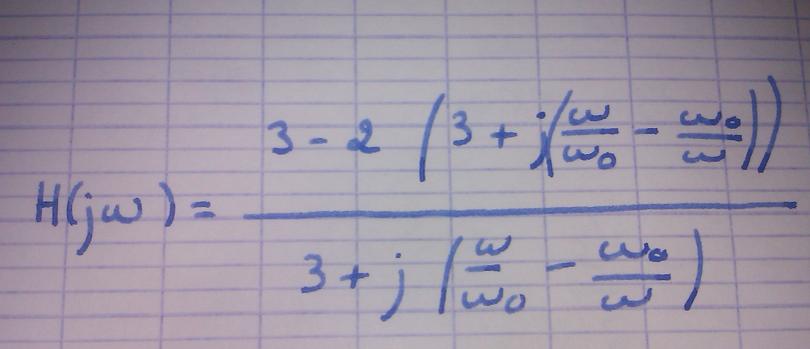 H(jω) = (3 - 2 (3 + j(ω/ω₀ - ω₀/ω))) / (3 + j (ω/ω₀ - ω₀/ω))